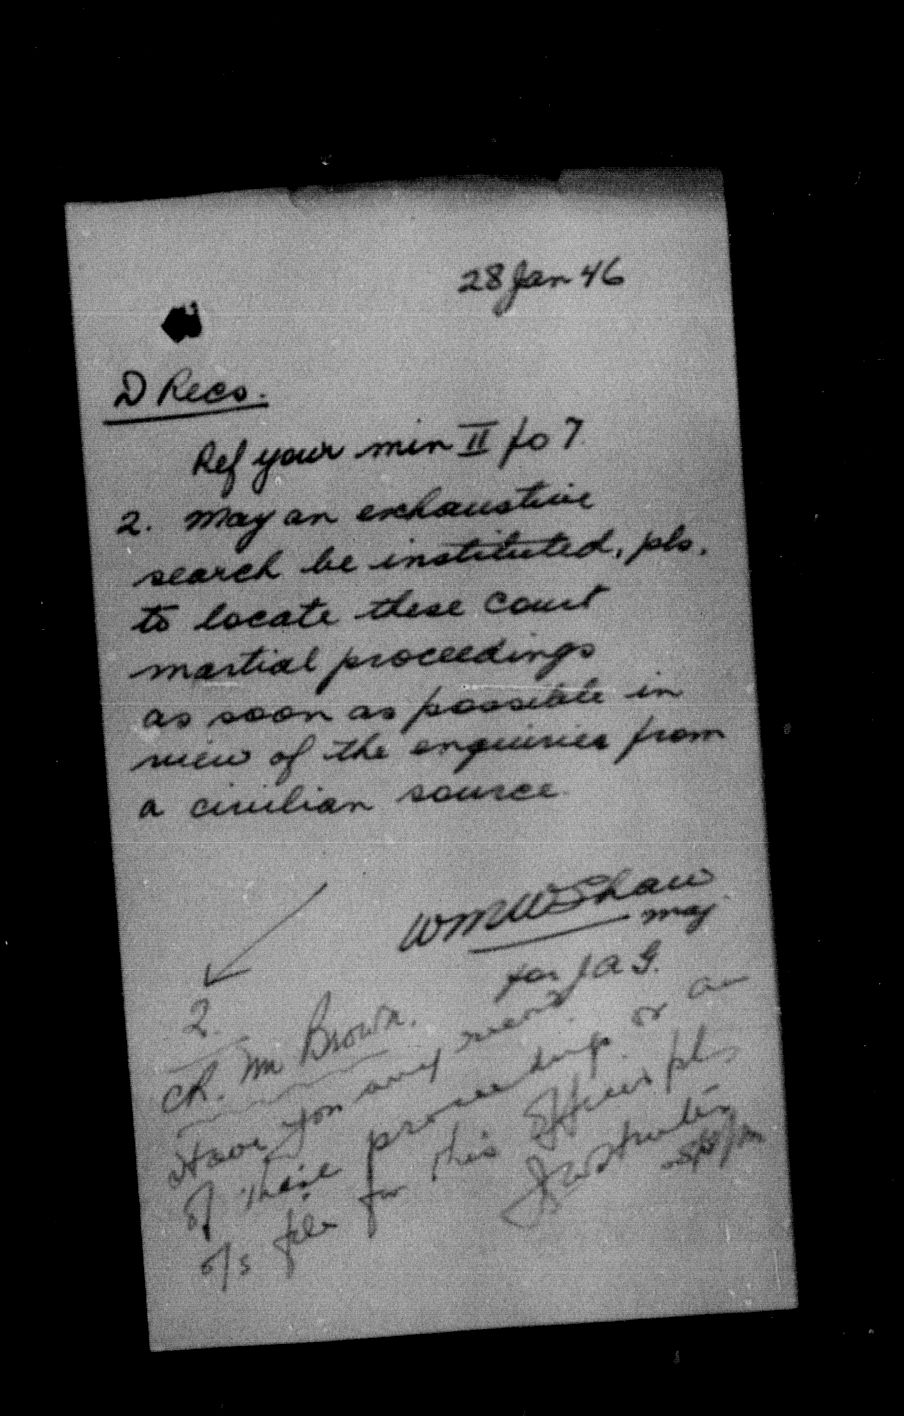 28 Jan 46
D Recs.
Ref your min II fo 7
2. May an exhaustive
search be instituted, pls.
to locate these court
martial proceedings
as soon as possible in
view of the enquiries from
a civilian source
WMW Shaw
Maj
for J A G.
2.
CR. Mr Brown.
Have you any record
of these proceedings or an
o/s file for this officer pls